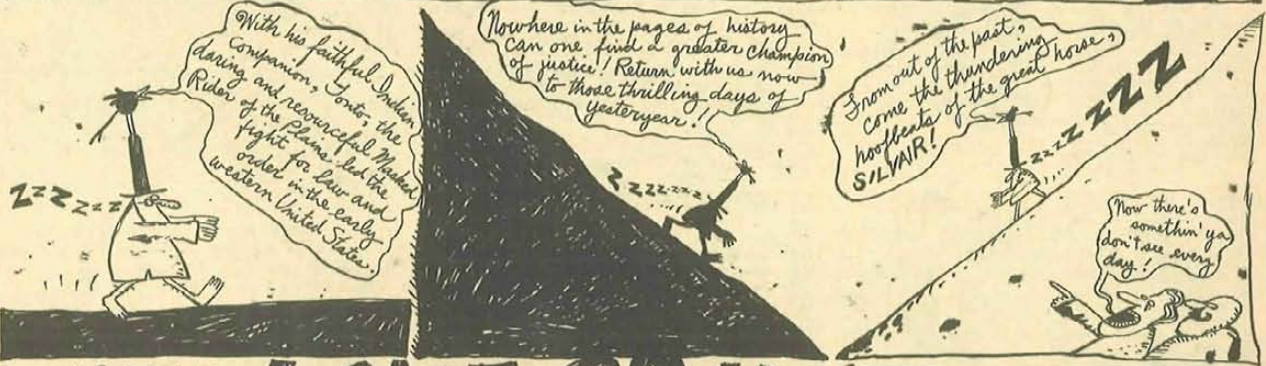 With his faithful Indian
companion, Tonto, the
daring and resourceful Masked
Rider of the Plains led the
fight for law and
order in the early
western United States.
ZZZZZZZ
Nowhere in the pages of history
can one find a greater champion
of justice! Return with us now
to those thrilling days of
yesteryear!!
ZZZZZZZZ
From out of the past,
come the thundering
hoofbeats of the great horse,
SILVAIR!
ZZZZZZZZ
Now there's
somethin' ya
don't see every
day!